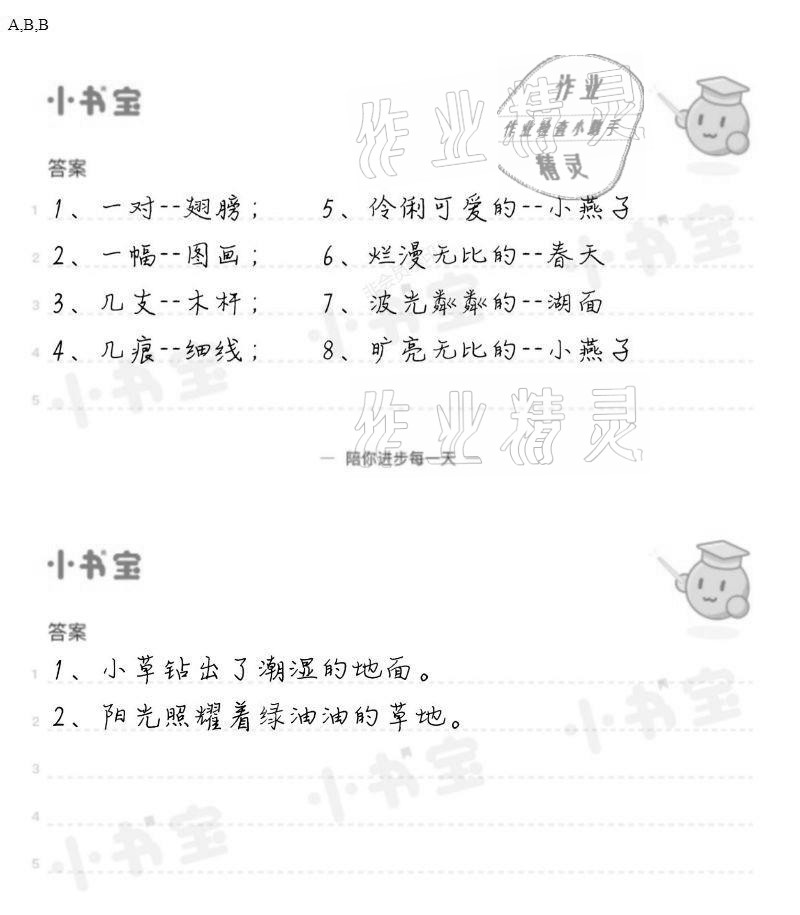 A,B,B
小书宝
作业精灵
作业
作业检查小助手
精灵
答案
1 1、一对--翅膀; 5、伶俐可爱的--小燕子
2 2、一幅--图画; 6、烂漫无比的--春天
3 3、几支--木杆; 7、波光粼粼的--湖面
4 4、几痕--细线; 8、旷亮无比的--小燕子
5
小书宝
小书宝
小书宝
作业精灵
一 陪你进步每一天
小书宝
答案
1 1、小草钻出了潮湿的地面。
2 2、阳光照耀着绿油油的草地。
3
4
5
小书宝
小书宝
小书宝